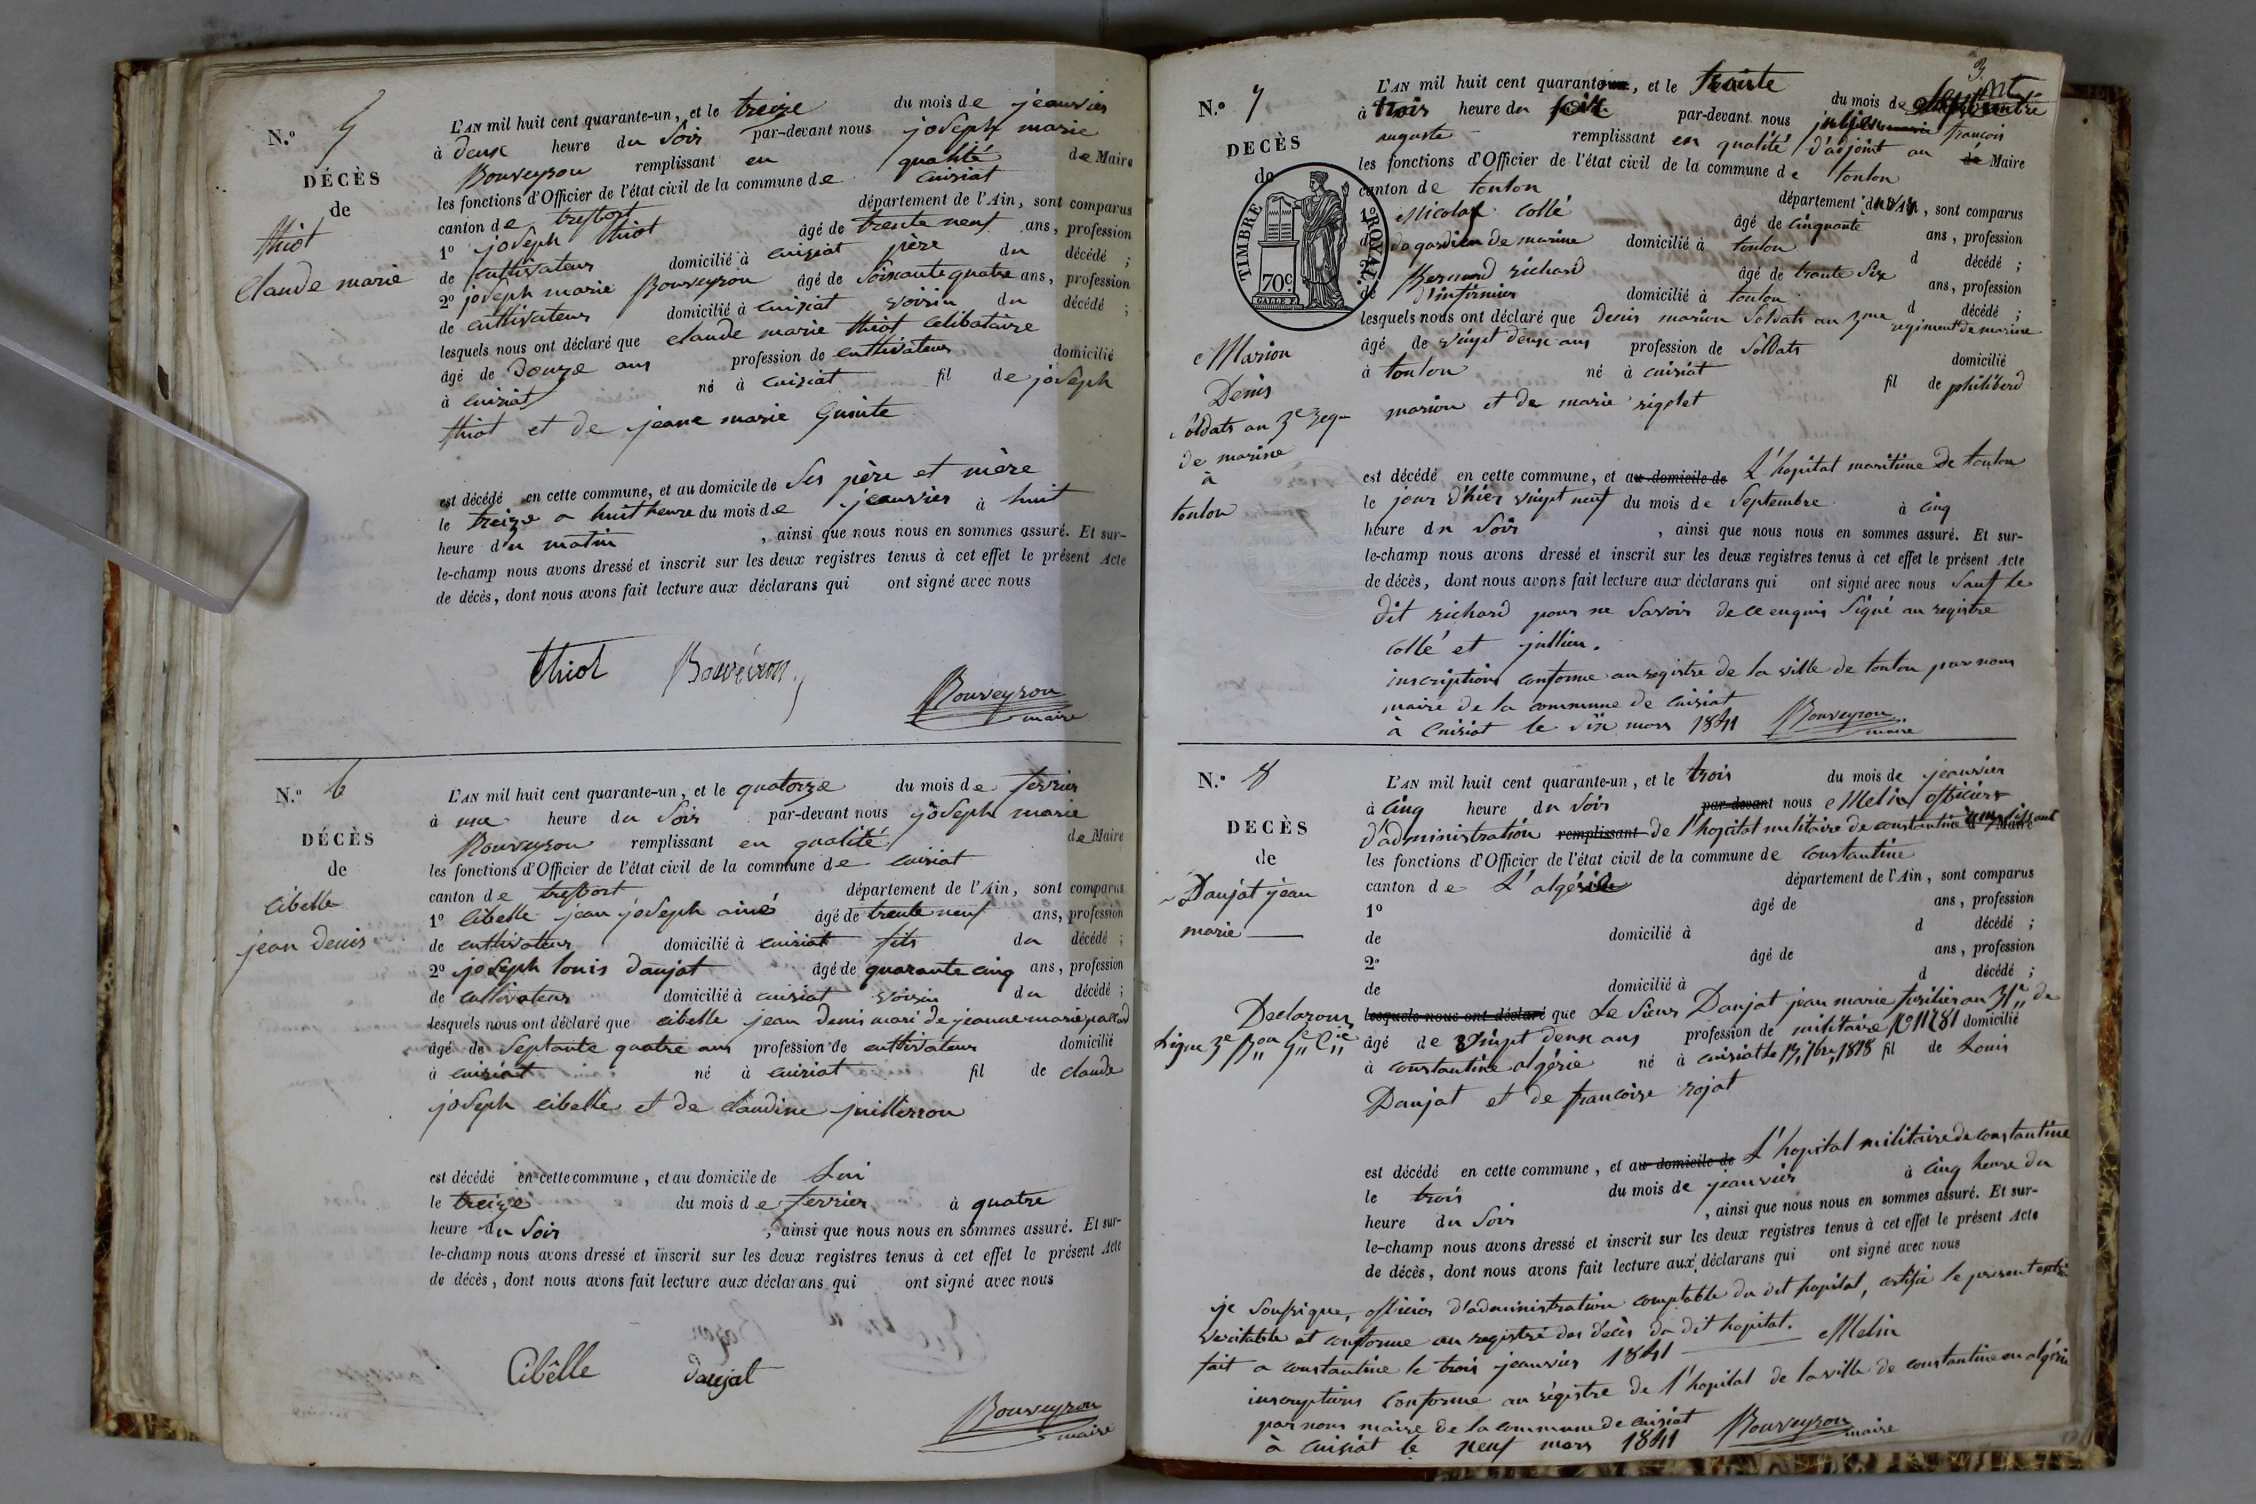 N.° 5
DÉCÈS
de
thiot
claude marie
L'AN mil huit cent quarante-un, et le treize du mois de jeanvier
à deux heure du soir par-devant nous joseph marie
Bouveyron remplissant en qualité de Maire
les fonctions d'Officier de l'état civil de la commune de cuisiat
canton de treffort département de l'Ain, sont comparus
1° joseph thiot âgé de trente neuf ans, profession
de cultivateur domicilié à cuisiat père du décédé ;
2° joseph marie Bouveyron âgé de soixante quatre ans, profession
de cultivateur domicilié à cuisiat voisin du décédé ;
lesquels nous ont déclaré que claude marie thiot celibataire
âgé de douze ans profession de cultivateur domicilié
à cuisiat né à cuisiat fil de joseph
thiot et de jeane marie
est décédé en cette commune, et au domicile de ses père et mère
le treize a huit heure du mois de jeanvier à huit
heure du matin , ainsi que nous nous en sommes assuré. Et sur-
le-champ nous avons dressé et inscrit sur les deux registres tenus à cet effet le présent Acte
de décès, dont nous avons fait lecture aux déclarans qui ont signé avec nous
thiot Bouvéiron
Bouveyron
maire
N.° 6
DÉCÈS
de
Cibelle
jean denis
L'AN mil huit cent quarante-un, et le quatorze du mois de fevrier
à une heure du soir par-devant nous joseph marie
Bouveyron remplissant en qualité de Maire
les fonctions d'Officier de l'état civil de la commune de cuisiat
canton de treffort département de l'Ain, sont comparus
1° Cibelle jean joseph ainé âgé de trente neuf ans, profession
de cultivateur domicilié à cuisiat fils du décédé ;
2° joseph louis daujat âgé de quarante cinq ans, profession
de cultivateur domicilié à cuisiat voisin du décédé ;
lesquels nous ont déclaré que cibelle jean denis mari de jeanne marie pallod
âgé de septante quatre ans profession de cultivateur domicilié
à cuisiat né à cuisiat fil de claude
joseph cibelle et de claudine juilleron
est décédé en cette commune, et au domicile de lui
le treize du mois de fevrier à quatre
heure du soir , ainsi que nous nous en sommes assuré. Et sur-
le-champ nous avons dressé et inscrit sur les deux registres tenus à cet effet le présent Acte
de décès, dont nous avons fait lecture aux déclarans qui ont signé avec nous
Cibêlle daujat
Bouveyron
maire
3
N.° 7
DECÈS
de
TIMBRE ROYAL
70c
Marion
Denis
soldats au 3e reg
de marine
à
toulon
L'AN mil huit cent quarante, et le trente du mois de septembre
à trois heure du soir par-devant nous jullien françois
auguste remplissant en qualité d'adjoint au Maire
les fonctions d'Officier de l'état civil de la commune de toulon
canton de toulon département du var, sont comparus
1° Nicolas collé âgé de cinquante ans, profession
de gardien de marine domicilié à toulon d décédé ;
2° Bernard richard âgé de trente six ans, profession
de d'infirmier domicilié à toulon d décédé ;
lesquels nous ont déclaré que denis marion soldats au 3me regiment de marine
âgé de vingt deux ans profession de soldats domicilié
à toulon né à cuisiat fil de philiberd
marion et de marie rigolet
est décédé en cette commune, et au domicile de L'hopital maritime de toulon
le jour d'hier vingt neuf du mois de septembre à cinq
heure du soir , ainsi que nous nous en sommes assuré. Et sur-
le-champ nous avons dressé et inscrit sur les deux registres tenus à cet effet le présent Acte
de décès, dont nous avons fait lecture aux déclarans qui ont signé avec nous sauf le
dit richard pour ne savoir de ce enquis signé au registre
collé et jullien.
inscription conforme au registre de la ville de toulon par nous
maire de la commune de cuisiat
à cuisiat le six mars 1841 Bouveyron
maire
N.° 8
DECÈS
de
Daujat jean
marie
L'AN mil huit cent quarante-un, et le trois du mois de jeanvier
à cinq heure du soir par-devant nous Melin officier
d'administration remplissant de l'hopital militaire de constantine remplissant d Maire
les fonctions d'Officier de l'état civil de la commune de constantine
canton de L'algérie département de l'Ain, sont comparus
1° âgé de ans, profession
de domicilié à d décédé ;
2° âgé de ans, profession
de domicilié à d décédé ;
Declarons lesquels nous ont déclaré que Le sieur Daujat jean marie fusilier au 31e de
Ligne 3e Bon 5e Cie âgé de vingt deux ans profession de militaire N° 11781 domicilié
à constantine algérie né à cuisiat le 17 7bre 1818 fil de Louis
Daujat et de francoise rojat
est décédé en cette commune, et au domicile de L'hopital militaire de constantine
le trois du mois de jeanvier à cinq heure du
heure du soir , ainsi que nous nous en sommes assuré. Et sur-
le-champ nous avons dressé et inscrit sur les deux registres tenus à cet effet le présent Acte
de décès, dont nous avons fait lecture aux déclarans qui ont signé avec nous
je sousigne, officier d'administration comptable du dit hopital, certifie le present extrai
veritable et conforme au registre des décès du dit hopital.
fait a constantine le trois jeanvier 1841 Melin
inscriptions conforme au régistre de l'hopital de la ville de constantine en algérie
par nous maire de la commune de cuisiat
à cuisiat le neuf mars 1841 Bouveyron
maire